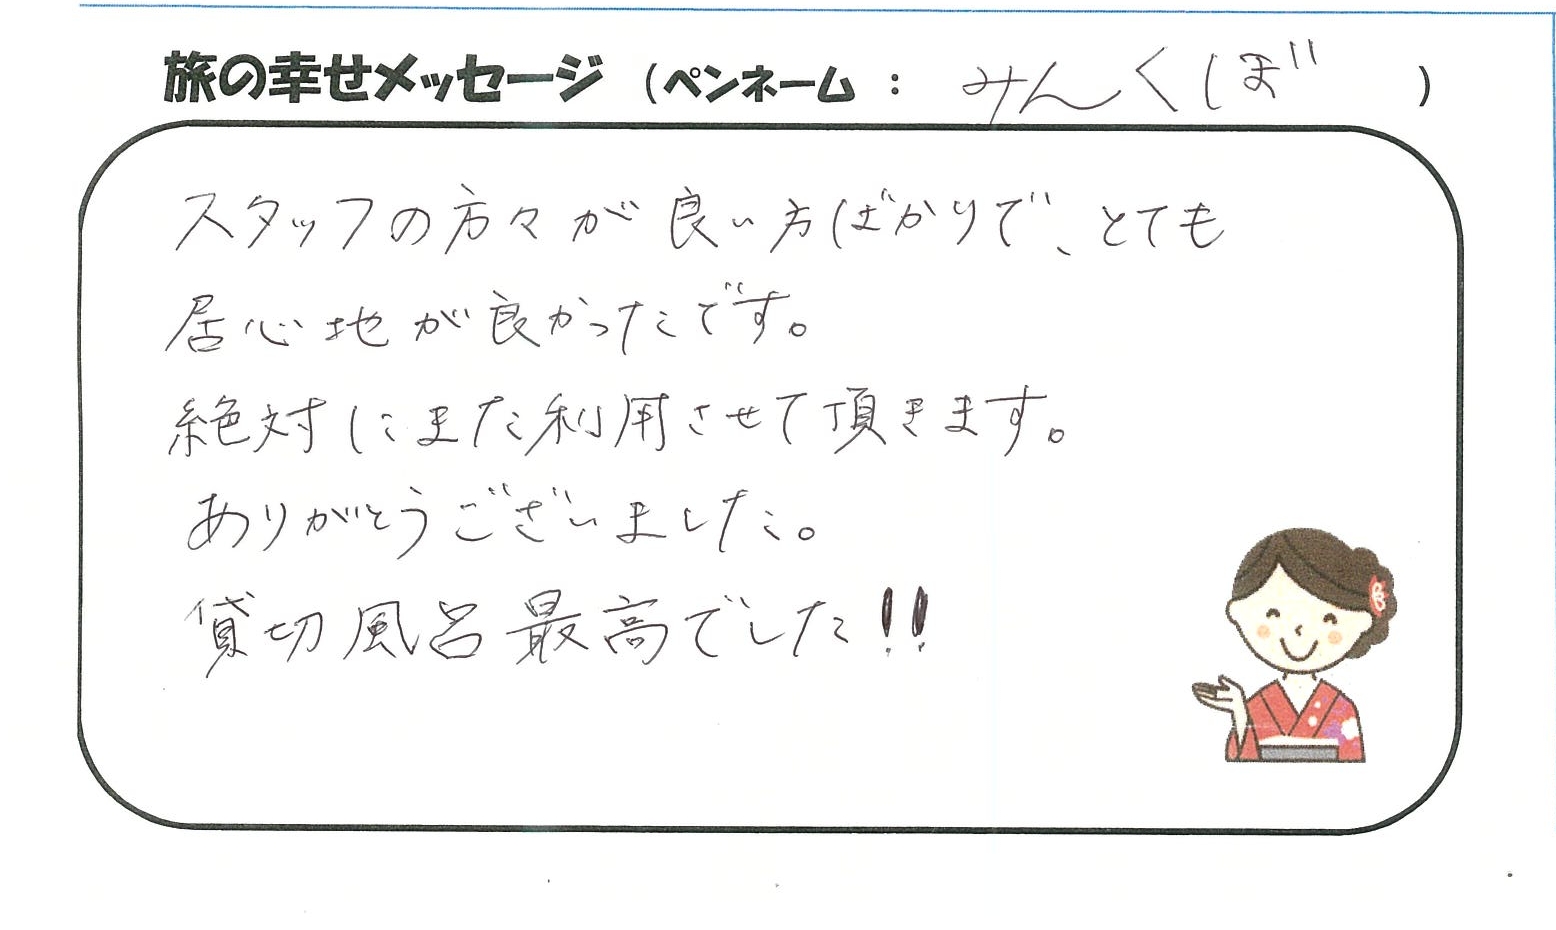 旅の幸せメッセージ (ペンネーム : みんくぼ )
スタッフの方々が良い方ばかりで、とても
居心地が良かったです。
絶対にまた利用させて頂きます。
ありがとうございました。
貸切風呂最高でした!!